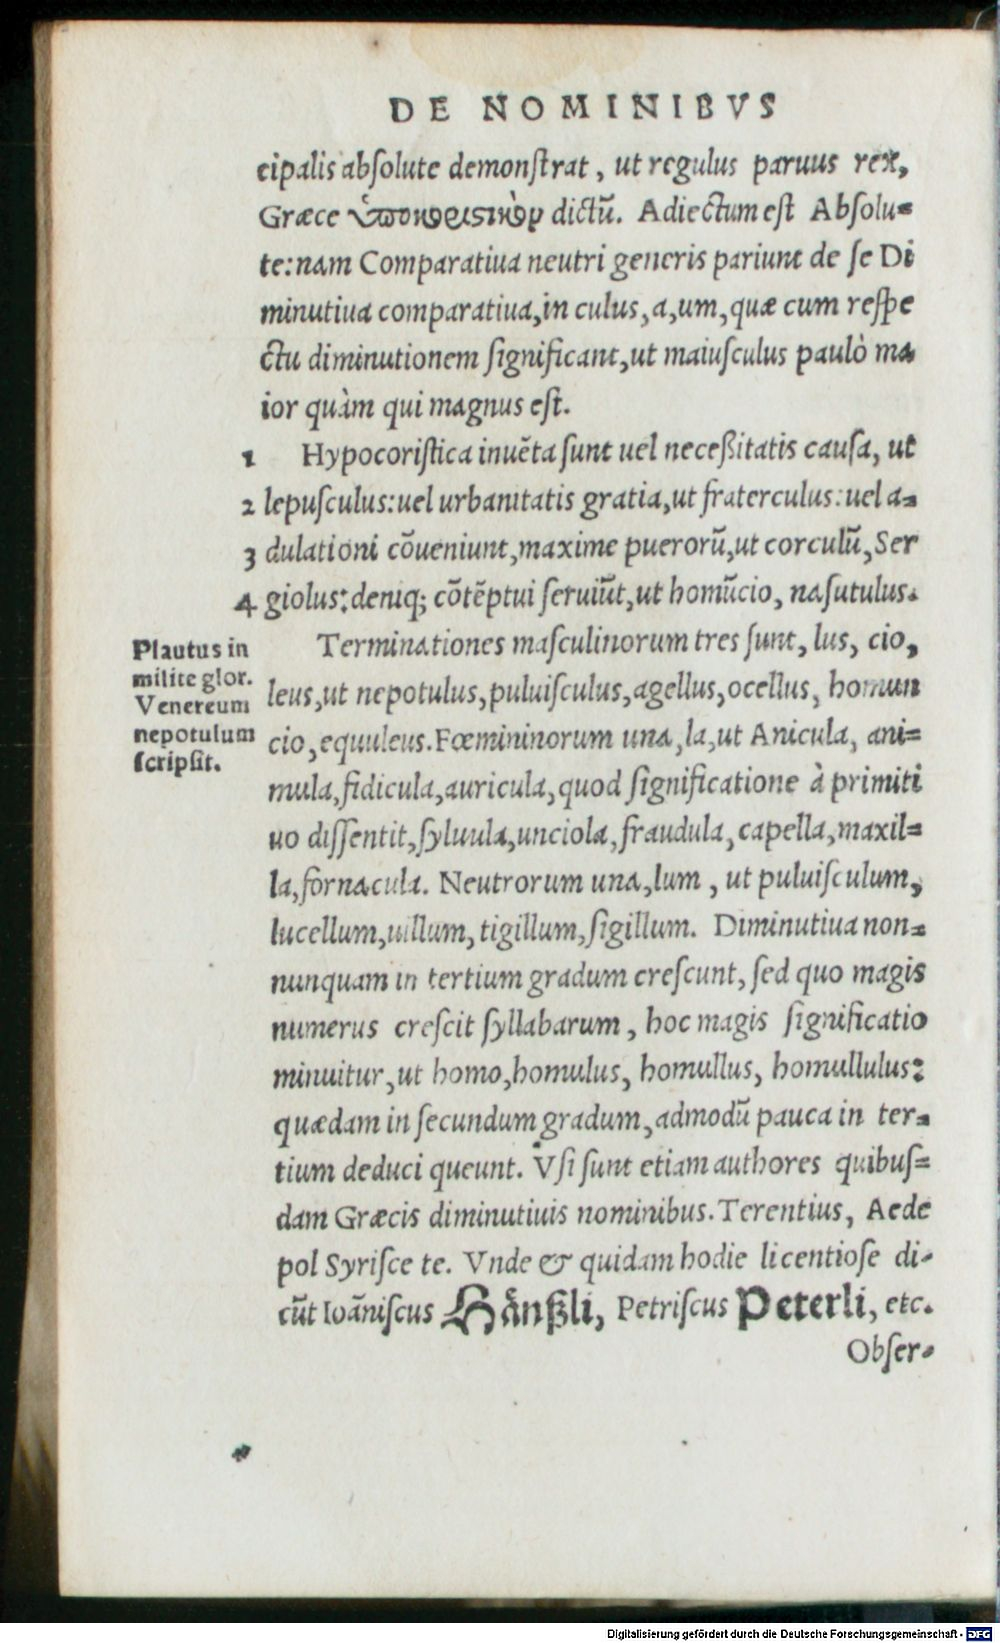 DE NOMINIBVS
cipalis absolute demonstrat, ut regulus paruus rex,
Græce ὑποκοριστικὸν dictũ. Adiectum est Absolu=
te: nam Comparatiua neutri generis pariunt de se Di
minutiua comparatiua, in culus, a, um, quæ cum respe
ctu diminutionem significant, ut maiusculus paulò ma
ior quàm qui magnus est.
1 Hypocoristica inuẽta sunt uel neceßitatis causa, ut
2 lepusculus: uel urbanitatis gratia, ut fraterculus: uel a=
3 dulationi cõueniunt, maxime puerorũ, ut corculũ, Ser
4 giolus: deniq; cõtẽptui seruiũt, ut homũcio, nasutulus.
Plautus in
milite glor.
Venereum
nepotulum
scripsit.
Terminationes masculinorum tres sunt, lus, cio,
leus, ut nepotulus, puluisculus, agellus, ocellus, homun
cio, equuleus. Fœmininorum una, la, ut Anicula, ani=
mula, fidicula, auricula, quod significatione à primiti
uo dissentit, syluula, unciola, fraudula, capella, maxil=
la, fornacula. Neutrorum una, lum, ut puluisculum,
lucellum, uillum, tigillum, sigillum. Diminutiua non=
nunquam in tertium gradum crescunt, sed quo magis
numerus crescit syllabarum, hoc magis significatio
minuitur, ut homo, homulus, homullus, homullulus:
quædam in secundum gradum, admodũ pauca in ter=
tium deduci queunt. Vsi sunt etiam authores quibus=
dam Græcis diminutiuis nominibus. Terentius, Aede
pol Syrisce te. Vnde & quidam hodie licentiose di=
cũt Ioãniscus Hånßli, Petriscus Peterli, etc.
Obser=
Digitalisierung gefördert durch die Deutsche Forschungsgemeinschaft - DFG